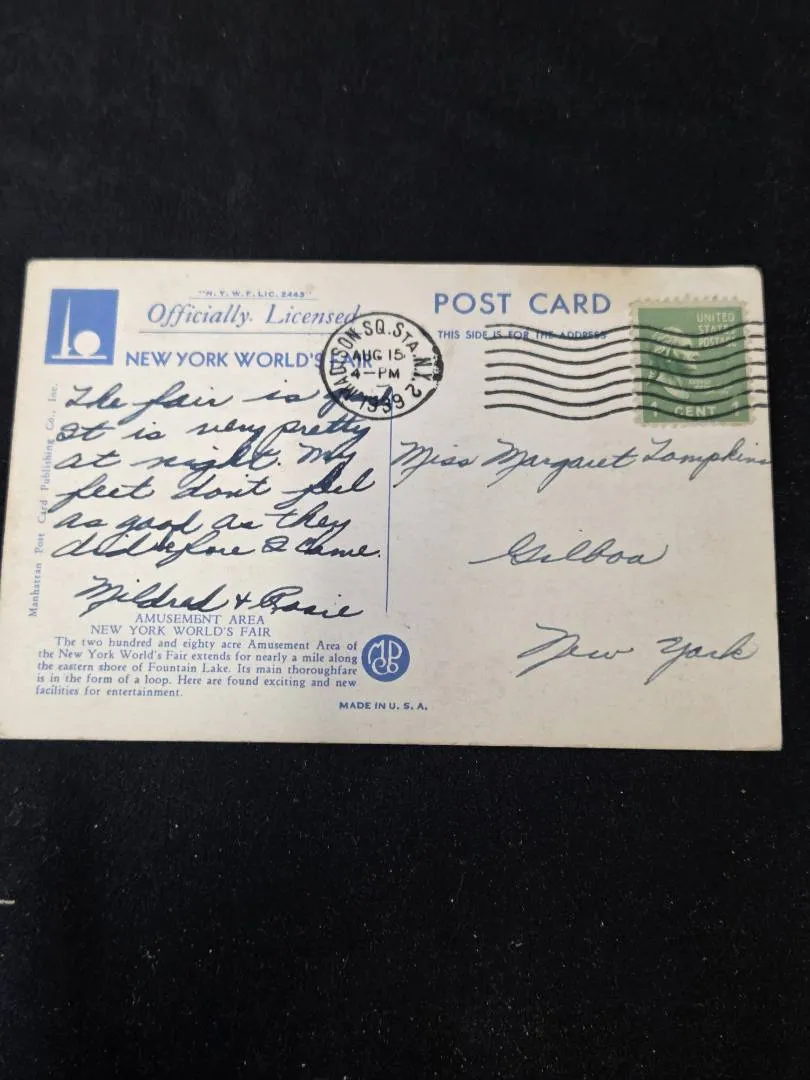 "N.Y.W.F. LIC. 2443"
Officially Licensed
NEW YORK WORLD'S FAIR
POST CARD
THIS SIDE IS FOR THE ADDRESS
MADISON SQ. STA. N.Y.
AUG 15
4-PM
1939
UNITED
STATES
POSTAGE
1 CENT 1
The fair is
It is very pretty
at night. My
feet dont feel
as good as they
did before I came.
Mildred + Rosie
Miss Margaret Tompkins
Gilboa
New York
Manhattan Post Card Publishing Co., Inc.
AMUSEMENT AREA
NEW YORK WORLD'S FAIR
The two hundred and eighty acre Amusement Area of
the New York World's Fair extends for nearly a mile along
the eastern shore of Fountain Lake. Its main thoroughfare
is in the form of a loop. Here are found exciting and new
facilities for entertainment.
MADE IN U. S. A.